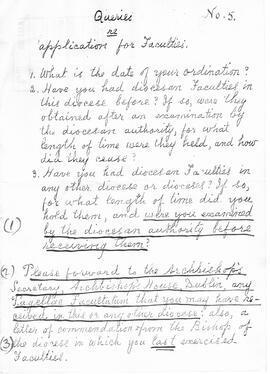 Queries No. 5.
re
application for Faculties.
1. What is the date of your ordination?
2. Have you had diocesan Faculties in
this diocese before? If so, were they
obtained after an examination by
the diocesan authority, for what
length of time were they held, and how
did they cease?
3. Have you had diocesan Faculties in
any other diocese or dioceses? If so,
for what length of time did you
hold them, and were you examined
(1) by the diocesan authority before
receiving them?
(2) Please forward to the Archbishop's
Secretary, Archbishop's House, Dublin, any
Pagellae Facultatum that you may have re-
ceived in this or any other diocese: also, a
letter of commendation from the Bishop of
(3) the diocese in which you last exercised
Faculties.